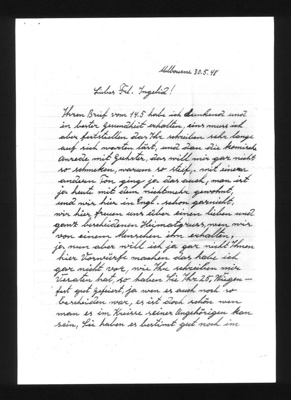 Melbourne 30.5.48
Liebes Frl. Ingelid!
Ihren Brief vom 14.5 habe ich dankend und
in bester Gesundheit erhalten, eins muss ich
aber feststellen das Ihr schreiben sehr lange
auf sich warten lässt, und dan die komische
anrede mit Geehrter, das will mir gar nicht
so schmecken, warum so steif, mit einem
andern Ton ging ja das auch, man ist
ja heute mit dem nichtmehr gewohnt,
und wir hier in Engl. schon garnicht,
wir hier freuen uns über einen lieben und
ganz bescheidenen Heimatgruss, wen wir
von einem Menschen ihn erhalten,
ja, nun aber will ich ja gar nicht Ihnen
hier Vorwürfe machen das habe ich
gar nicht vor, wie Ihr schreiben mir
verraten hat, so haben Sie Ihr 25, Wiegen =
fest gut gefeiert, ja wen es auch noch so
bescheiden war, es ist doch schön wen
man es im Kreise seiner Angehörigen kan
sein, Sie haben es bestimt gut noch im